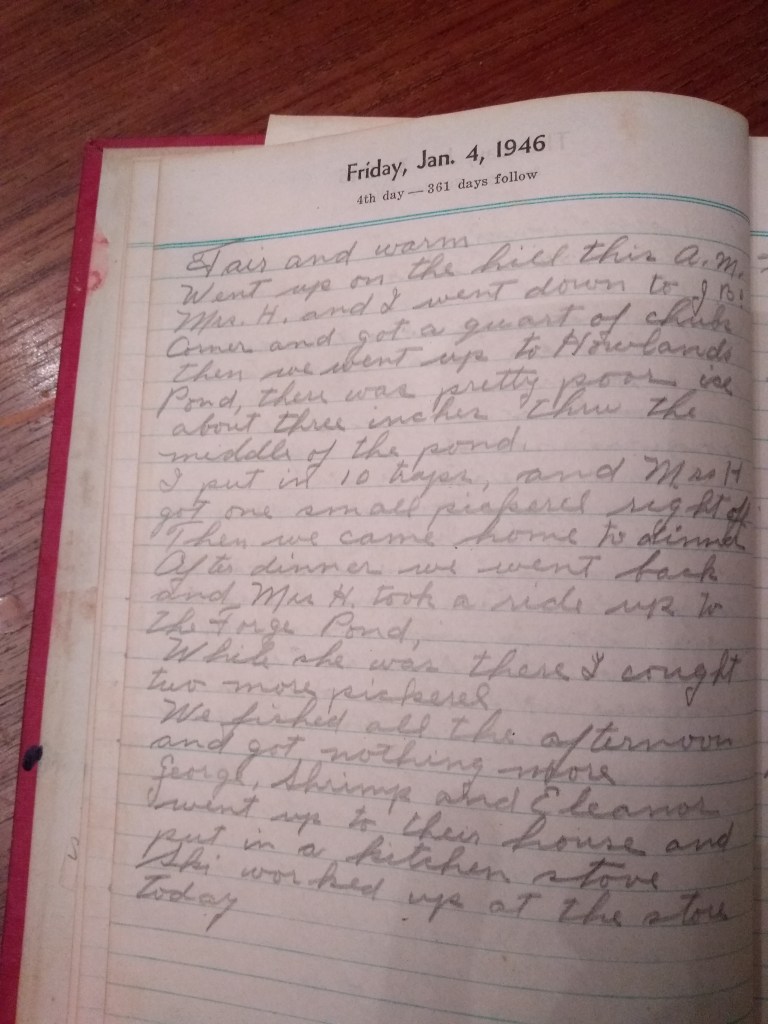 Friday, Jan. 4, 1946
4th day — 361 days follow
Fair and warm
Went up on the hill this A.M.
Mrs. H. and I went down to J B.
Corner and got a quart of chubs
then we went up to Howlands
Pond, there was pretty poor ice
about three inches thru the
middle of the pond.
I put in 10 traps, and Mrs H
got one small pickerel right off
Then we came home to dinner
After dinner we went back
and Mrs H. took a ride up to
the Forge Pond,
While she was there I cought
two more pickerel
We fished all the afternoon
and got nothing more
George, Shrimp and Eleanor
went up to their house and
put in a kitchen stove
Ski worked up at the store
today